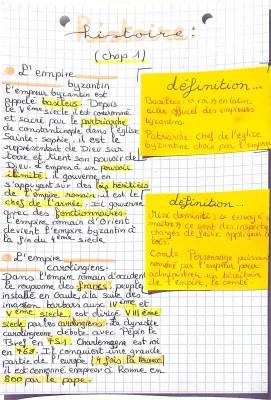 histoire :
(chap 1)
L'empire
byzantin
L'empereur byzantin est
appelé basileus. Depuis
le Vème siècle il est couronné
et sacré par le patriarche
de constantinople dans l'église
Sainte-Sophie. il est le
représentent de Dieu sur
terre et tient son pouvoir de
Dieu. l'empereur a un pouvoir
illimité. il gouverne en
s'appuyant sur des lois héritées
de l'empire romain il est le
chef de l'armée. Il gouverne
avec des fonctionnaires.
L'empire romain d'Orient
devient l'empire byzantin à
la fin du 4ème siècle
L'empire
carolingiens.
Dans l'Empire romain d'occident
le royaume des francs, peuple
installé en Gaule, à la suite des
invasion barbars aux IVème et
Vème siècle, est dirigé VIIIème
siècle par les carolingiens. La dynastie
carolingienne débute avec Pépin le
Bref en 751. Charlemagne est roi
en 768. Il conquiert une grande
partie de l'europe
il est couronné empereur à Rome en
800 par le pape.
définition...
Basileus : roi en
titre officiel des empereurs
byzantins.
Patriarche : chef de l'église
byzantine choisi par l'empereur
définition...
envoyé du
maitre) ce sont des inspecteurs
chargés de faire appliquer les
lois.
Comte : Personnage puissant
nommé par l'empereur, pour
administrer un
de l'empire, le comté